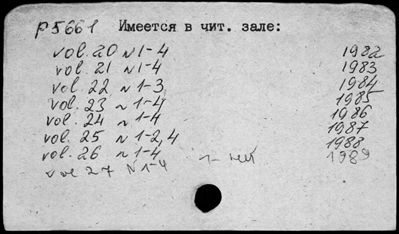 P5661 Имеется в чит. зале:
vol. 20 N 1-4 1982
vol. 21 N 1-4 1983
vol. 22 N 1-3 1984
vol. 23 N 1-4 1985
vol. 24 N 1-4 1986
vol. 25 N 1-2,4 1987
vol. 26 N 1-4 1988
vol 27 N 1-4 1989